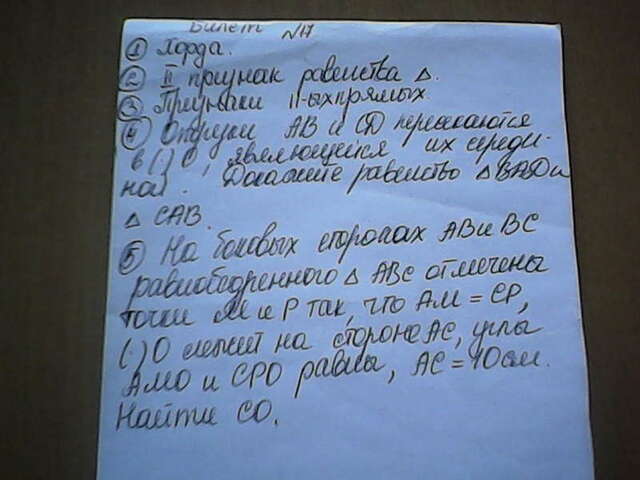 Билет №17
① Хорда.
② II признак равенства Δ.
③ Признаки II-ых прямых.
④ Отрезки AB и CD пересекаются
в (.) O, являющейся их середи-
ной. Докажите равенство Δ BAD и
Δ CAB.
⑤ На боковых сторонах AB и BC
равнобедренного Δ ABC отмечены
точки M и P так, что AM = CP,
(.) O лежит на стороне AC, углы
AMO и CPO равны, AC = 10см.
Найти CO.